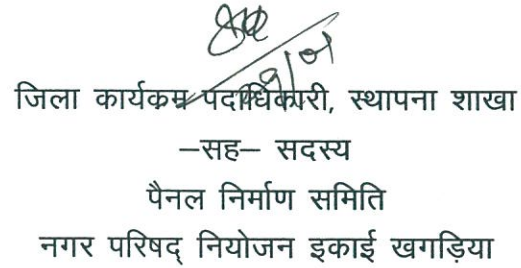 जिला कार्यकम पदाधिकारी, स्थापना शाखा
–सह– सदस्य
पैनल निर्माण समिति
नगर परिषद् नियोजन इकाई खगड़िया